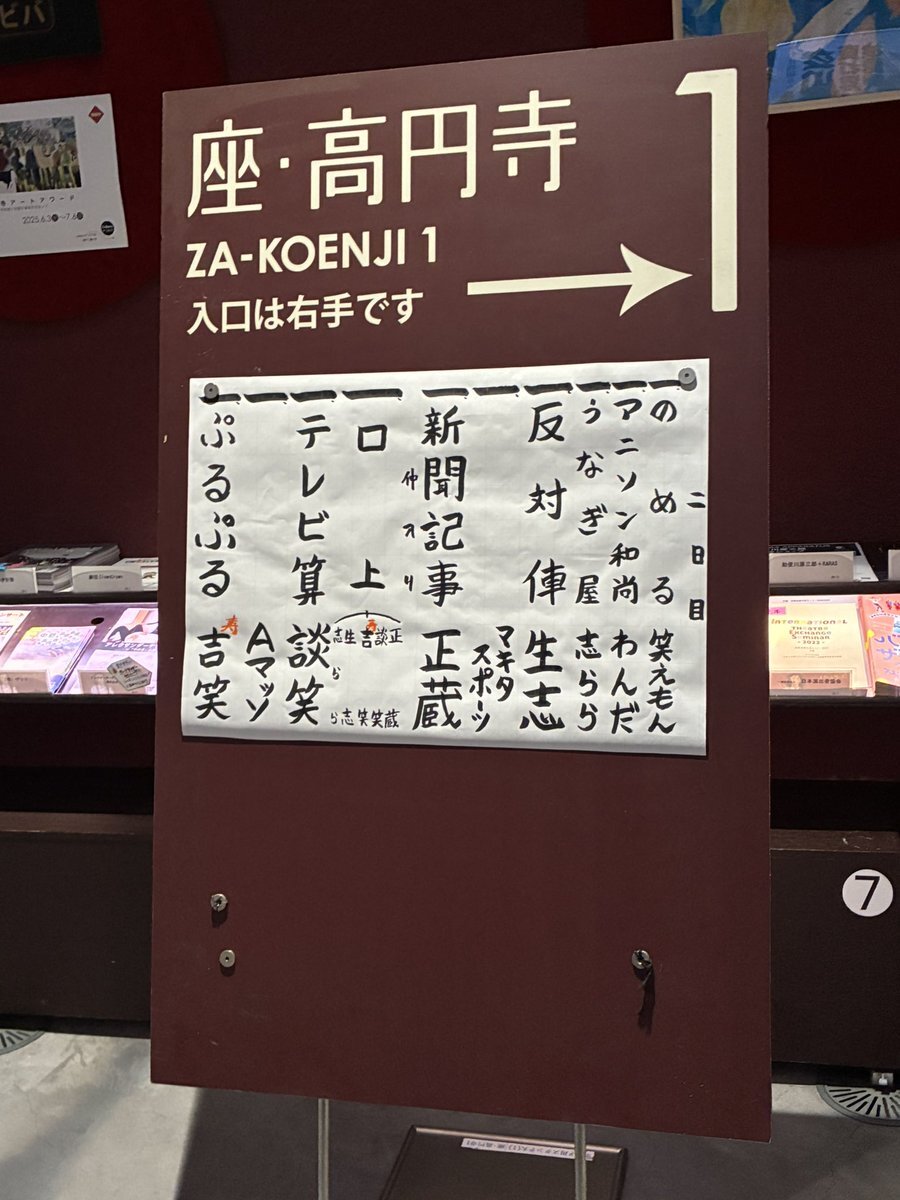 座・高円寺
1
ZA-KOENJI 1
入口は右手です
二日目
一、のめる 笑えもん
一、アニソン和尚 わんだ
一、うなぎ屋 志らら
一、反対俥 生志
一、マキタスポーツ
一、新聞記事 正蔵
仲入り
一、口上
正談吉生志
寿
蔵笑笑志ら
ら
一、テレビ算 談笑
一、Aマッソ
一、ぷるぷる 吉笑
寿
7
2025.6.3
7.6
International
Theatre
Exchange
Seminar
2022
ビバ